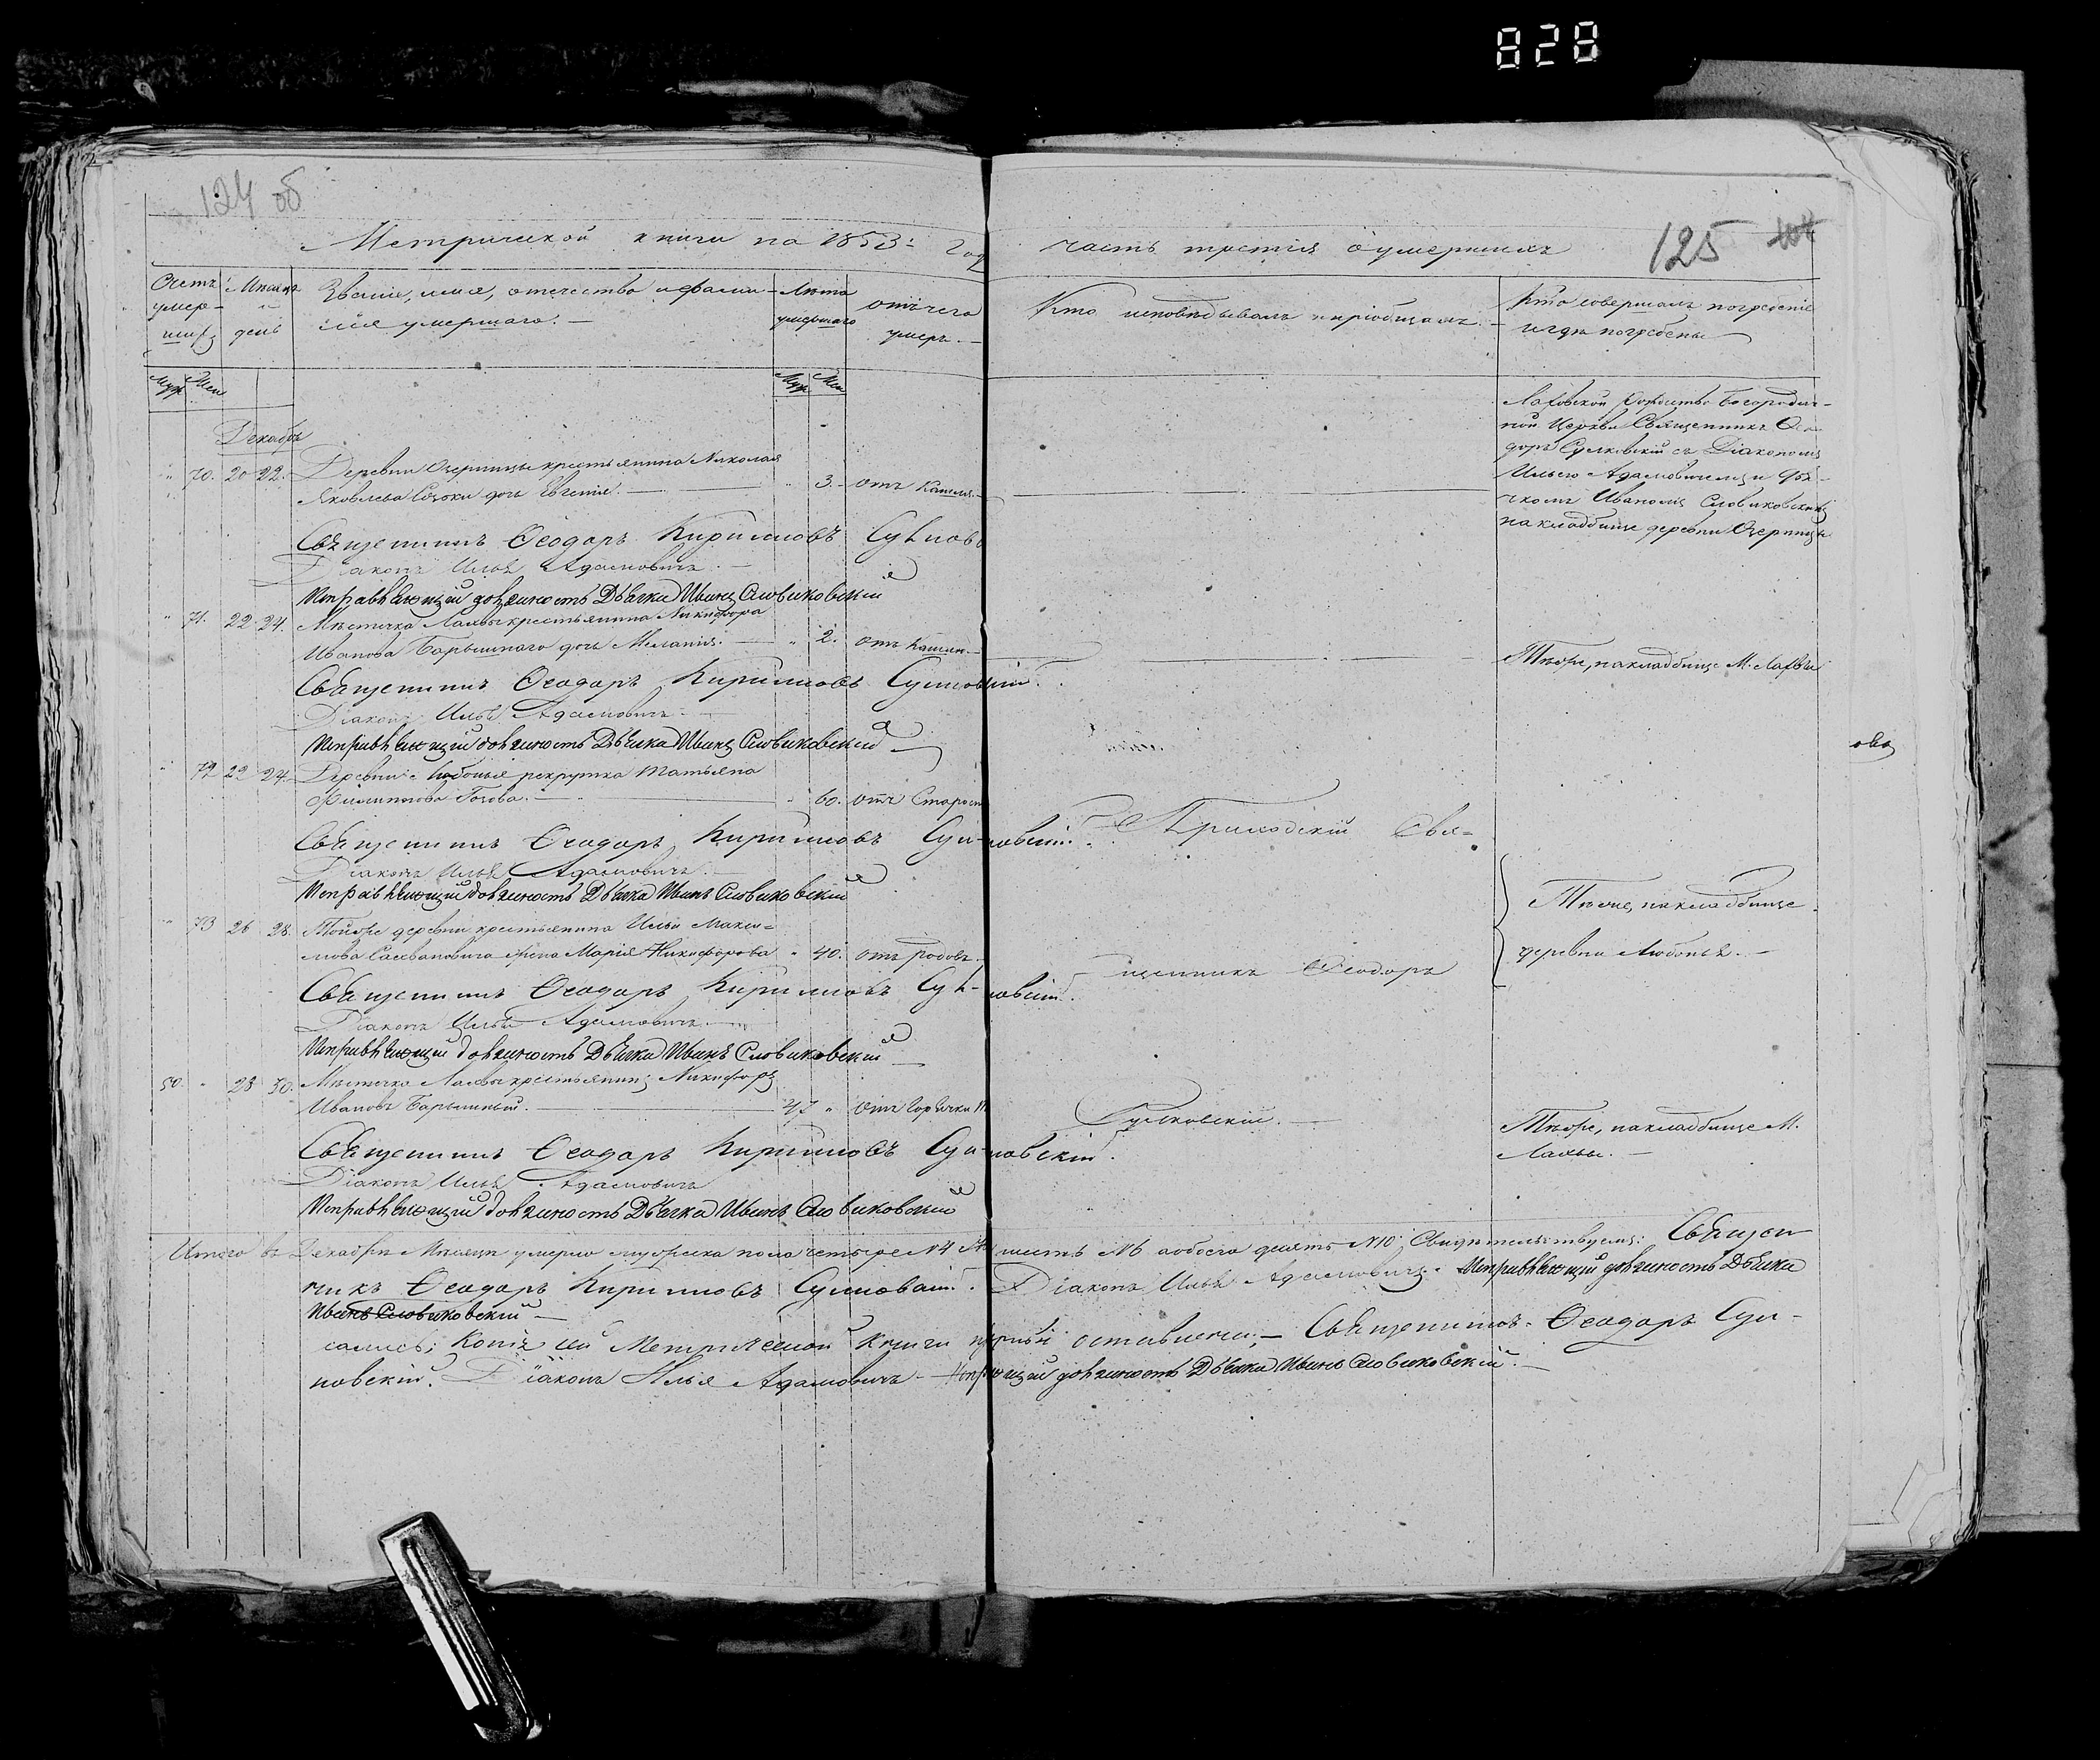 828
124 об
125
Метрической книги на 1853й год часть третія о умершихъ
Счетъ умершихъ
Мѣсяцъ и день
Званіе, имя, отечество и фамилія умершаго.
Лѣта умершаго
отъ чего умеръ.
Кто исповѣдывалъ и пріобщалъ.
Кто совершалъ погребеніе и гдѣ погребены
Муж Жен
Муж Жен
Декабрь
" 70. 20 22. Деревни Озерницы крестьянина Николая
Яковлева дочь Евгенія. " 3. отъ Кашля.
Лахвской Рождество Богородич-
ной Церкви Священникъ Ѳео-
доръ Сулковскій съ Діакономъ
Ильею Адамовичемъ и дья-
чкомъ Иваномъ Словиковскимъ
на кладбище деревни Озерницы
Священникъ Ѳеодоръ Кирилловъ
Діаконъ Илья Адамовичъ.
Исправляющій должность Дьячка Иванъ Словиковскій
" 71. 22 24. Мѣстечка Лахвы крестьянина Никифора
Иванова Барышнаго дочь Меланія. " 2. отъ Кашля.
Тѣже, на кладбище М. Лахвы
Священникъ Ѳеодоръ Кирилловъ Сулковскій.
Діаконъ Илья Адамовичъ.
Исправляющій должность Дьячка Иванъ Словиковскій
" 72 22 24. Деревни Любонья рекрутка Татьяна
Филиппова " 60. отъ Старости
Священникъ Ѳеодоръ Кирилловъ Сулковскій.
Приходскій Свя-
Діаконъ Илья Адамовичъ.
Исправляющій должность Дьячка Иванъ Словиковскій
" 73 26 28. Тойже деревни крестьянина Ильи Макси-
мова жена Марія Никифорова " 40. отъ родовъ.
Тѣже, на кладбище
деревни Любонья.
щенникъ Ѳеодоръ
Священникъ Ѳеодоръ Кирилловъ Сулковскій.
Діаконъ Илья Адамовичъ.
Исправляющій должность Дьячка Иванъ Словиковскій
50. " 28 30. Мѣстечка Лахвы крестьянинъ Никифоръ
Ивановъ Барышный. 47 " отъ Горячки
Сулковскій.
Тѣже, на кладбище М.
Лахвы.
Священникъ Ѳеодоръ Кирилловъ Сулковскій.
Діаконъ Илья Адамовичъ
Исправляющій должность Дьячка Иванъ Словиковскій
Итого въ Декабрѣ Мѣсяцѣ умерло мужеска пола четыре №4 шесть №6 а обоего десять №10; Свидѣтельствуемъ: Священ
никъ Ѳеодоръ Кирилловъ Сулковскій. Діаконъ Илья Адамовичъ. Исправляющій должность Дьячка
Иванъ Словиковскій
Копія сей Метрической книги оставлена; Священникъ Ѳеодоръ Сул-
ковскій. Діаконъ Илья Адамовичъ должность Дьячка Иванъ Словиковскій.